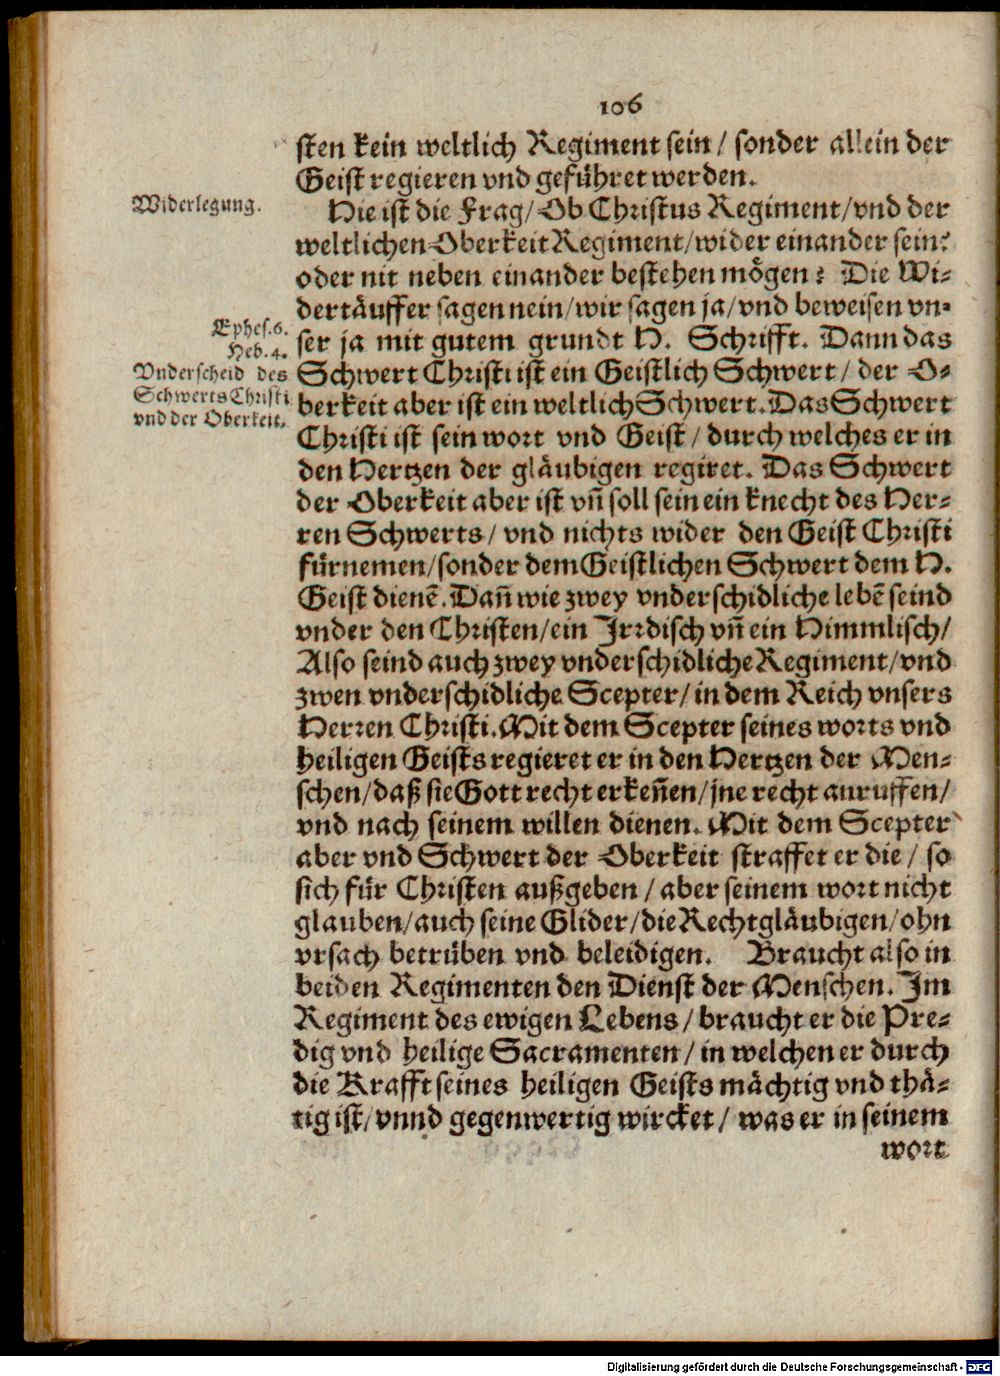 106
sten kein weltlich Regiment sein / sonder allein der
Geist regieren vnd geführet werden.
Widerlegung.
Hie ist die Frag / Ob Christus Regiment / vnd der
weltlichen Oberkeit Regiment / wider einander sein?
oder nit neben einander bestehen mögen? Die Wi-
dertäuffer sagen nein / wir sagen ja / vnd beweisen vn-
Ephes. 6.
Heb. 4.
ser ja mit gutem grundt H. Schrifft. Dann das
Vnderscheid des
Schwerts Christi
vnd der Oberkeit.
Schwert Christi ist ein Geistlich Schwert / der O-
berkeit aber ist ein weltlich Schwert. Das Schwert
Christi ist sein wort vnd Geist / durch welches er in
den Hertzen der gläubigen regiret. Das Schwert
der Oberkeit aber ist vñ soll sein ein knecht des Her-
ren Schwerts / vnd nichts wider den Geist Christi
fürnemen / sonder dem Geistlichen Schwert dem H.
Geist dienē. Dañ wie zwey vnderschidliche lebē seind
vnder den Christen / ein Irrdisch vñ ein Himmlisch /
Also seind auch zwey vnderschidliche Regiment / vnd
zwen vnderschidliche Scepter / in dem Reich vnsers
Herren Christi. Mit dem Scepter seines worts vnd
heiligen Geists regieret er in den Hertzen der Men-
schen / daß sie Gott recht erkeñen / jne recht anruffen /
vnd nach seinem willen dienen. Mit dem Scepter
aber vnd Schwert der Oberkeit straffet er die / so
sich für Christen außgeben / aber seinem wort nicht
glauben / auch seine Glider / die Rechtgläubigen / ohn
vrsach betrüben vnd beleidigen. Braucht also in
beiden Regimenten den Dienst der Menschen. Im
Regiment des ewigen Lebens / braucht er die Pre-
dig vnd heilige Sacramenten / in welchen er durch
die Krafft seines heiligen Geists mächtig vnd thä-
tig ist / vnnd gegenwertig wircket / was er in seinem
wort
Digitalisierung gefördert durch die Deutsche Forschungsgemeinschaft - DFG